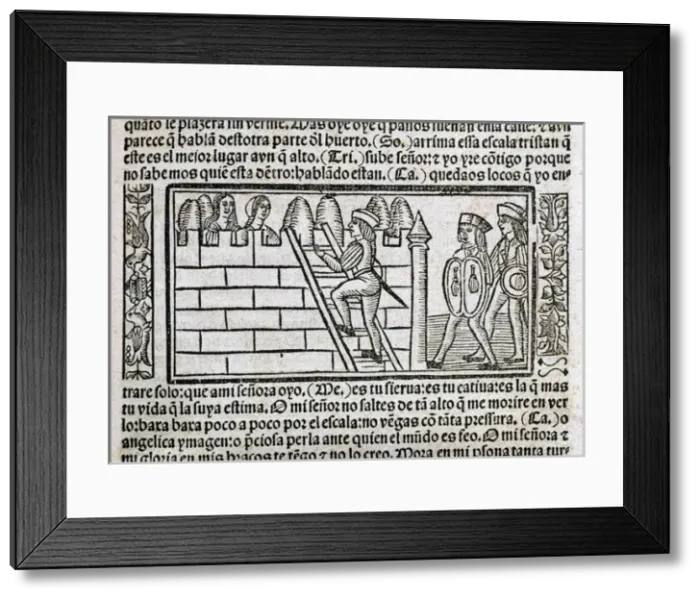 quãto le plazera mi verme. Mas oye oye q̃ passos suenan enla calle: ⁊ avn
parece q̃ hablã destotra parte ðl huerto. (So.) arrima essa escala tristan q̃
este es el mejor lugar avn q̃ alto. (Tri.) sube señor: ⁊ yo yre cõtigo porque
no sabemos quiẽ esta dẽtro: hablãdo estan. (Ca.) quedaos locos q̃ yo en-
trare solo: que ami señora oyo. (Me.) es tu sierua: es tu catiua: es la q̃ mas
tu vida q̃ la suya estima. O mi señor no saltes de tã alto q̃ me morire en ver
lo: baxa baxa poco a poco por el escala: no vẽgas cõ tãta pressura. (Ca.) o
angelica ymagen: o p̃ciosa perla ante quien el mũdo es feo. O mi señora ⁊
mi gloria en mis braços te tẽgo ⁊ no lo creo. Mora en mi p̃sona tanta tur-